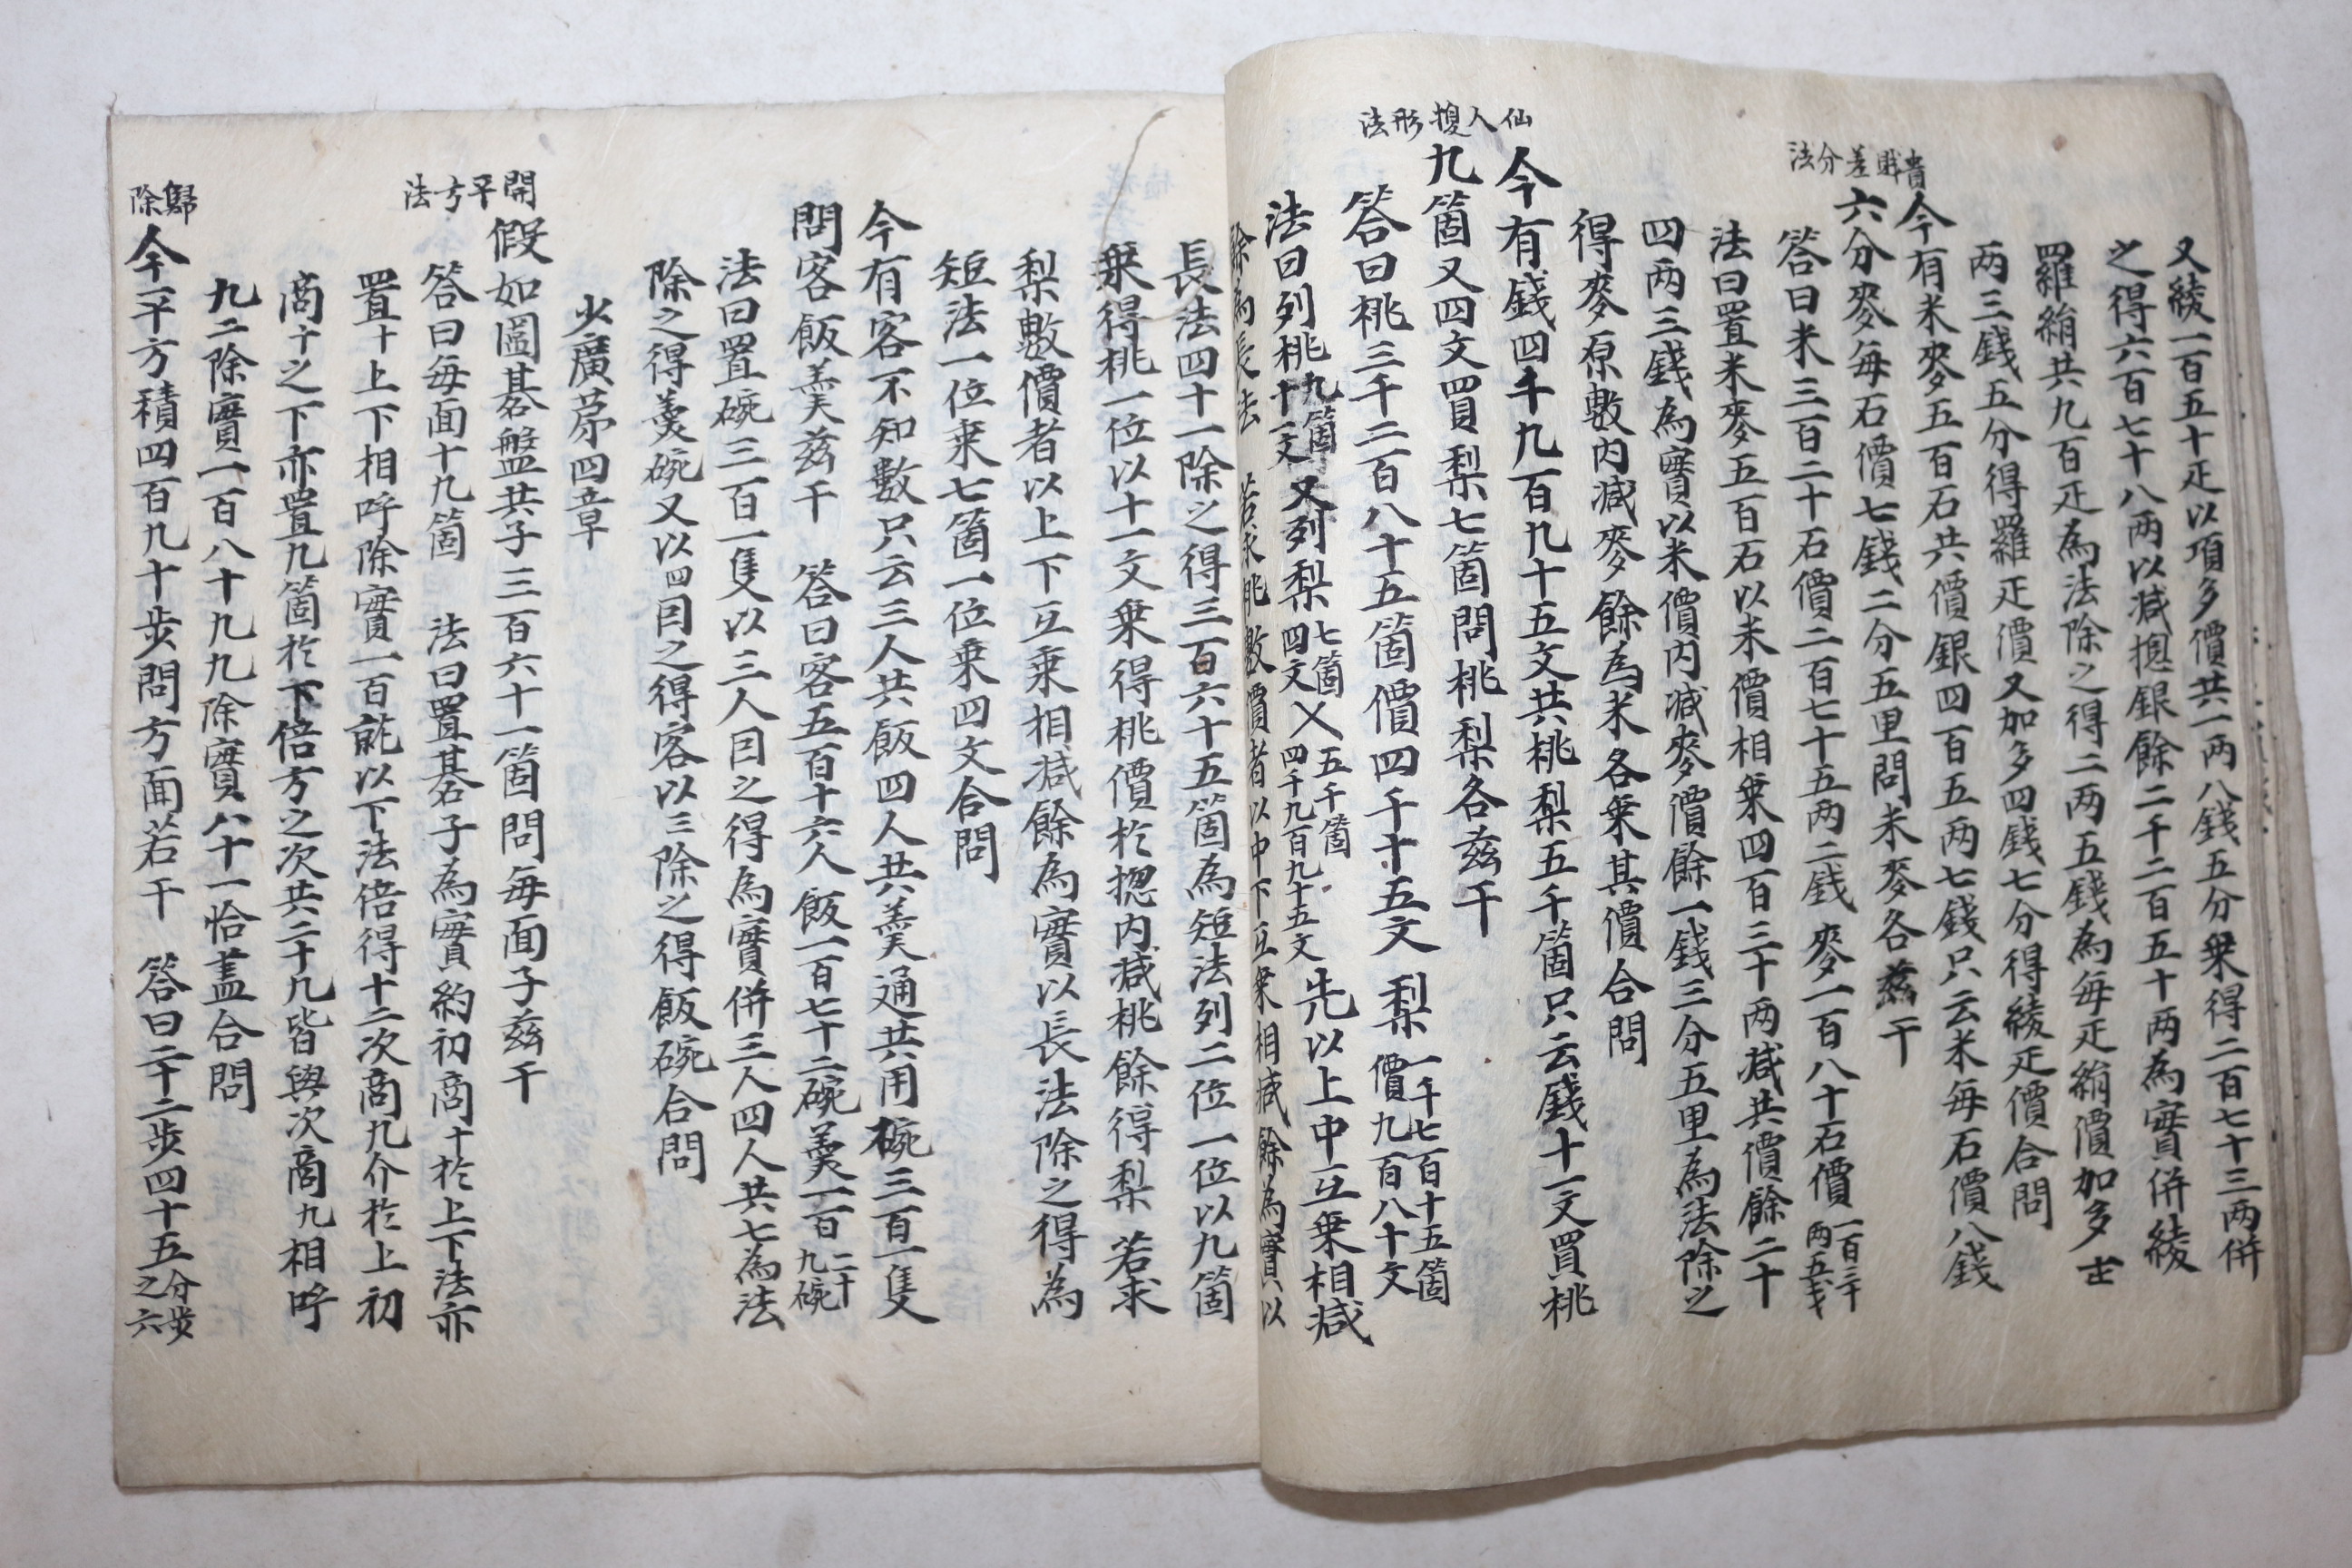 又綾一百五十疋以項多價共一两八錢五分乗得二百七十三两併
之得六百七十八两以减揔銀餘二千二百五十两為實併綾
羅絹共九百疋為法除之得二两五錢為每疋絹價加多
两三錢五分得羅疋價又加多四錢七分得綾疋價合問
貴賎差分法
今有米麥五百石共價銀四百五两七錢只云米每石價八錢
六分麥每石價七錢二分五里問米麥各兹干
答曰米三百二十石價二百七十五两二戔 麥一百八十石價一百三十两五戔
法曰置米麥五百石以米價相乗四百三十两减共價餘二十
四两三錢為實以米價内减麥價餘一錢三分五里為法除之
得麥原數内减麥餘為米各乗其價合問
仙人換形法
今有錢四千九百九十五文共桃梨五千箇只云錢十一文買桃
九箇又四文買梨七箇問桃梨各兹干
答曰桃三千二百八十五箇價四千十五文 梨一千七百十五箇價九百八十文
法曰列桃九箇十一文又列梨七箇四文㐅五千箇四千九百九十五文 先以上中互乗相减
餘為長法 若求桃數價者以中下互乗相减餘為實以
長法四十一除之得三百六十五箇為短法列二位一位以九箇
乗得桃一位以十一文乗得桃價於揔内减桃餘得梨 若求
梨數價者以上下互乗相减餘為實以長法除之得為
短法一位乗七箇一位乗四文合問
今有客不知數只云三人共飯四人共羹通共用碗三百一隻
問客飯羹兹干 答曰客五百十六人飯一百七十二碗羹一百二十九碗
法曰置碗三百一隻以三人因之得為實併三人四人共七為法
除之得羹碗又以四因之得客以三除之得飯碗合問
少廣苐四章
開平方法
假如圖棊盤共子三百六十一箇問每面子兹干
答曰每面十九箇 法曰置棊子為實約初商十於上下法亦
置十上下相呼除實一百訖以下法倍得十二次商九介於上初
商十之下亦置九箇於下倍方之次共二十九皆與次商九相呼
九二除實一百八十九九除實八十一恰盡合問
歸除
今平方積四百九十步問方面若干 答曰二十二步四十五分步之六